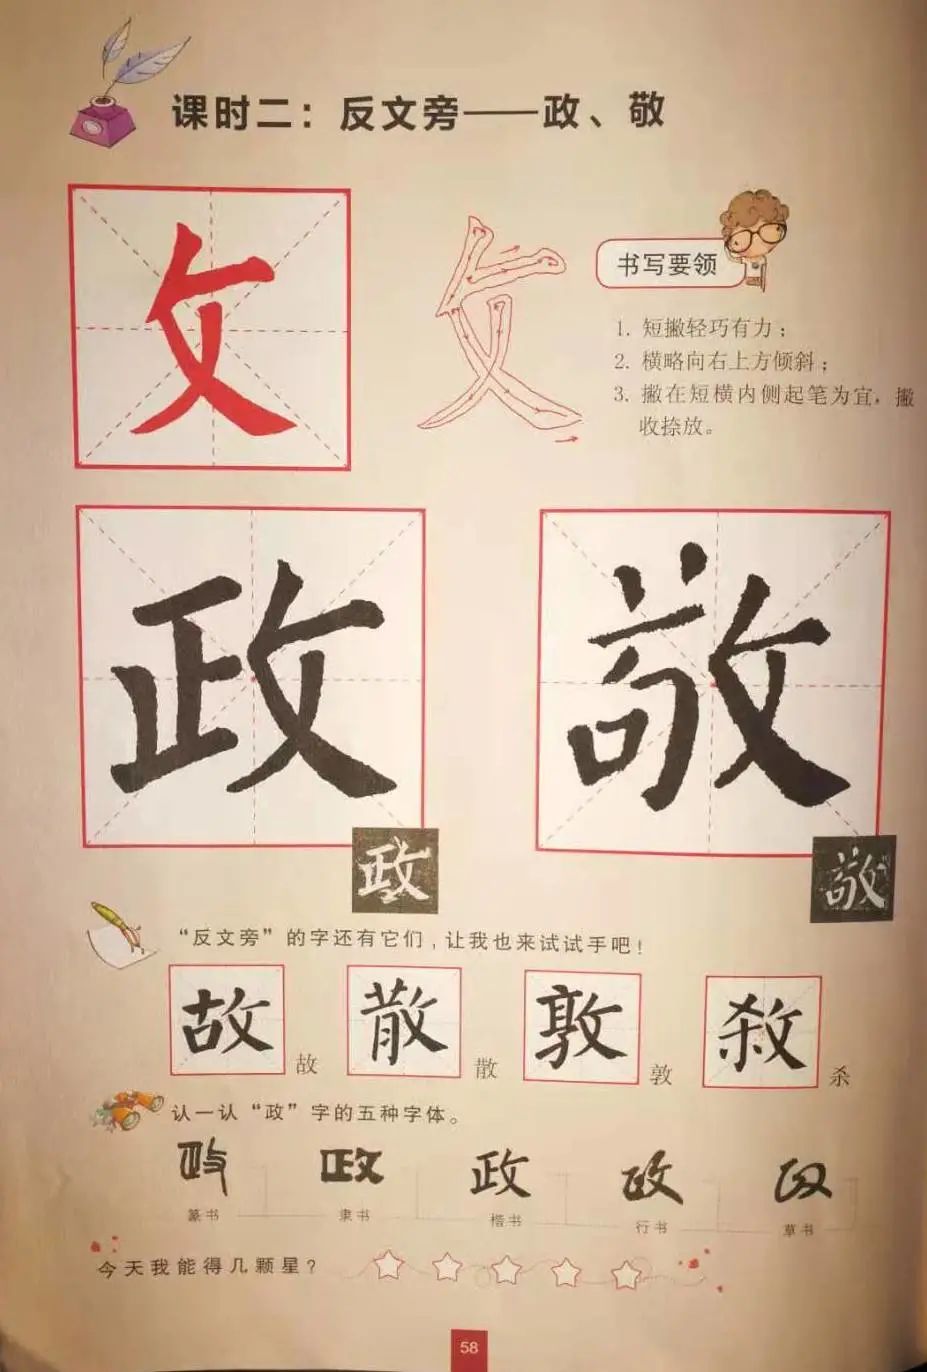 课时二：反文旁——政、敬
攵
书写要领
1. 短撇轻巧有力；
2. 横略向右上方倾斜；
3. 撇在短横内侧起笔为宜，撇
收捺放。
政 敬
政 敬
“反文旁”的字还有它们，让我也来试试手吧！
故 故 散 散 敦 敦 敎 杀
认一认“政”字的五种字体。
政 政 政 政 政
篆书 隶书 楷书 行书 草书
今天我能得几颗星？
58